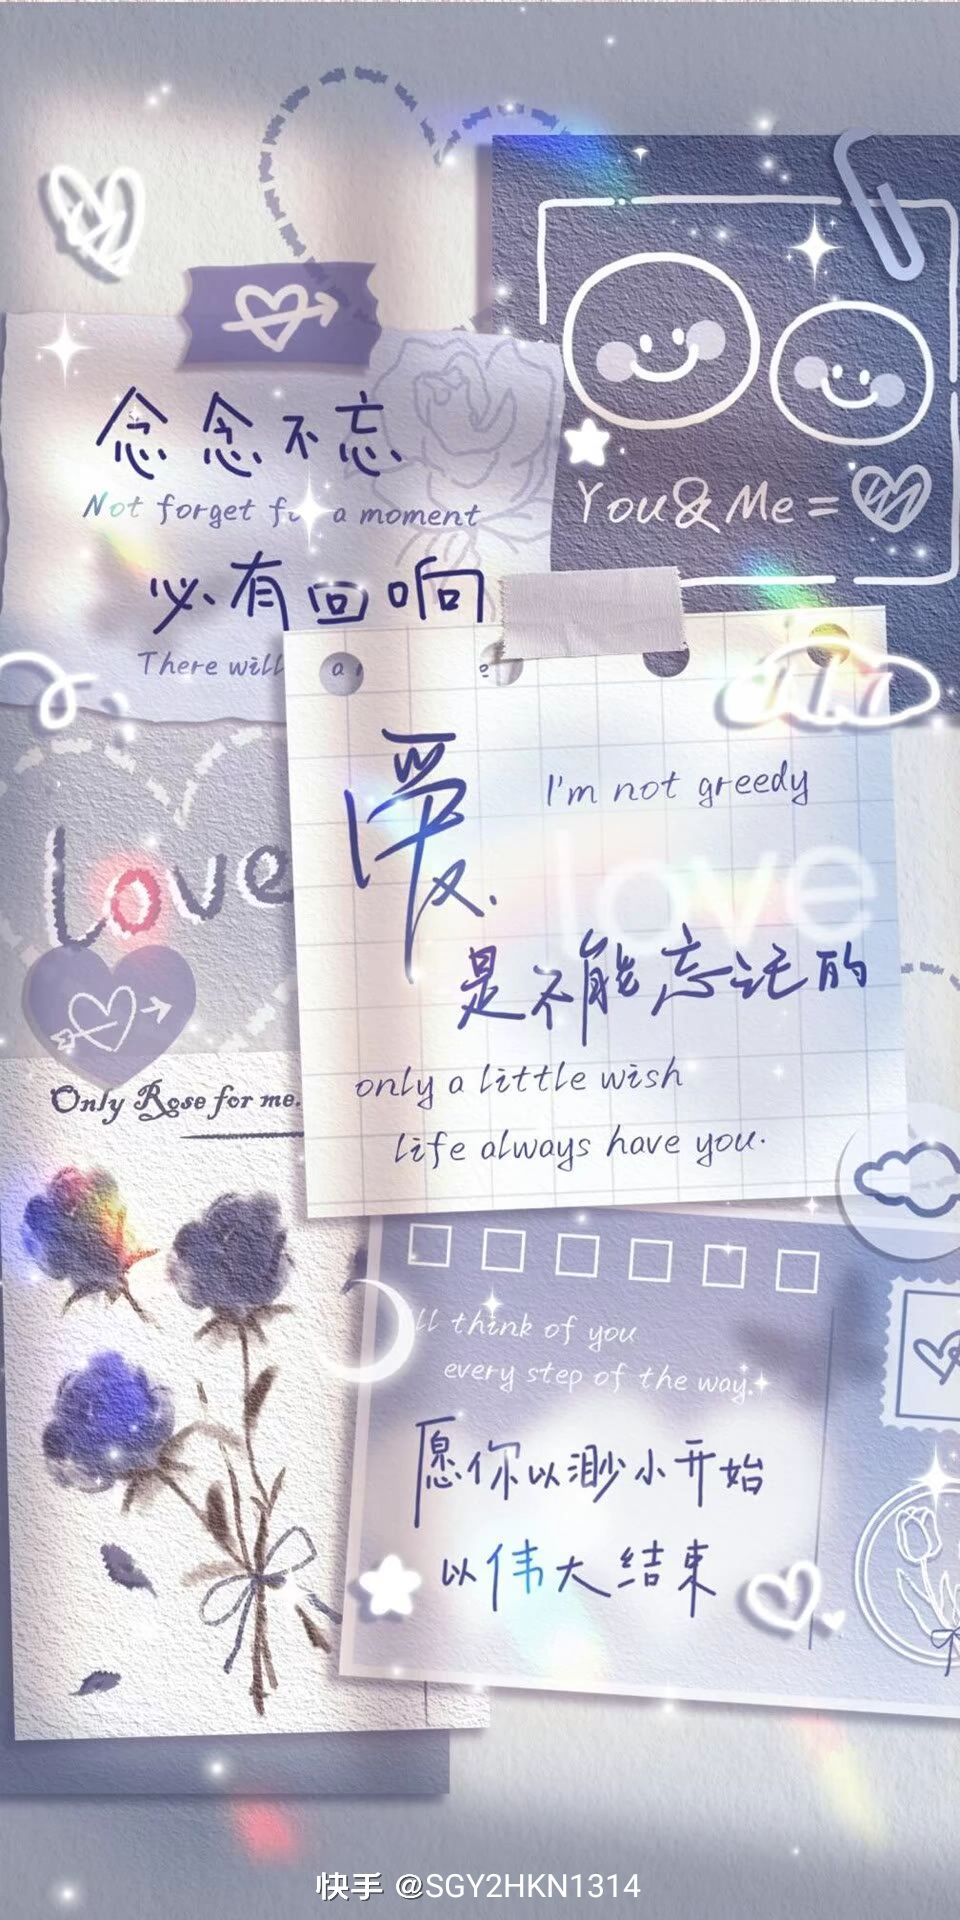 念念不忘
Not forget a moment
必有回响
There will a
You&Me=
爱
I'm not greedy
love
love
是不能忘记的
only a little wish
life always have you.
Only Rose for me.
ll think of you
every step of the way.
愿你以渺小开始
以伟大结束
快手 @SGY2HKN1314